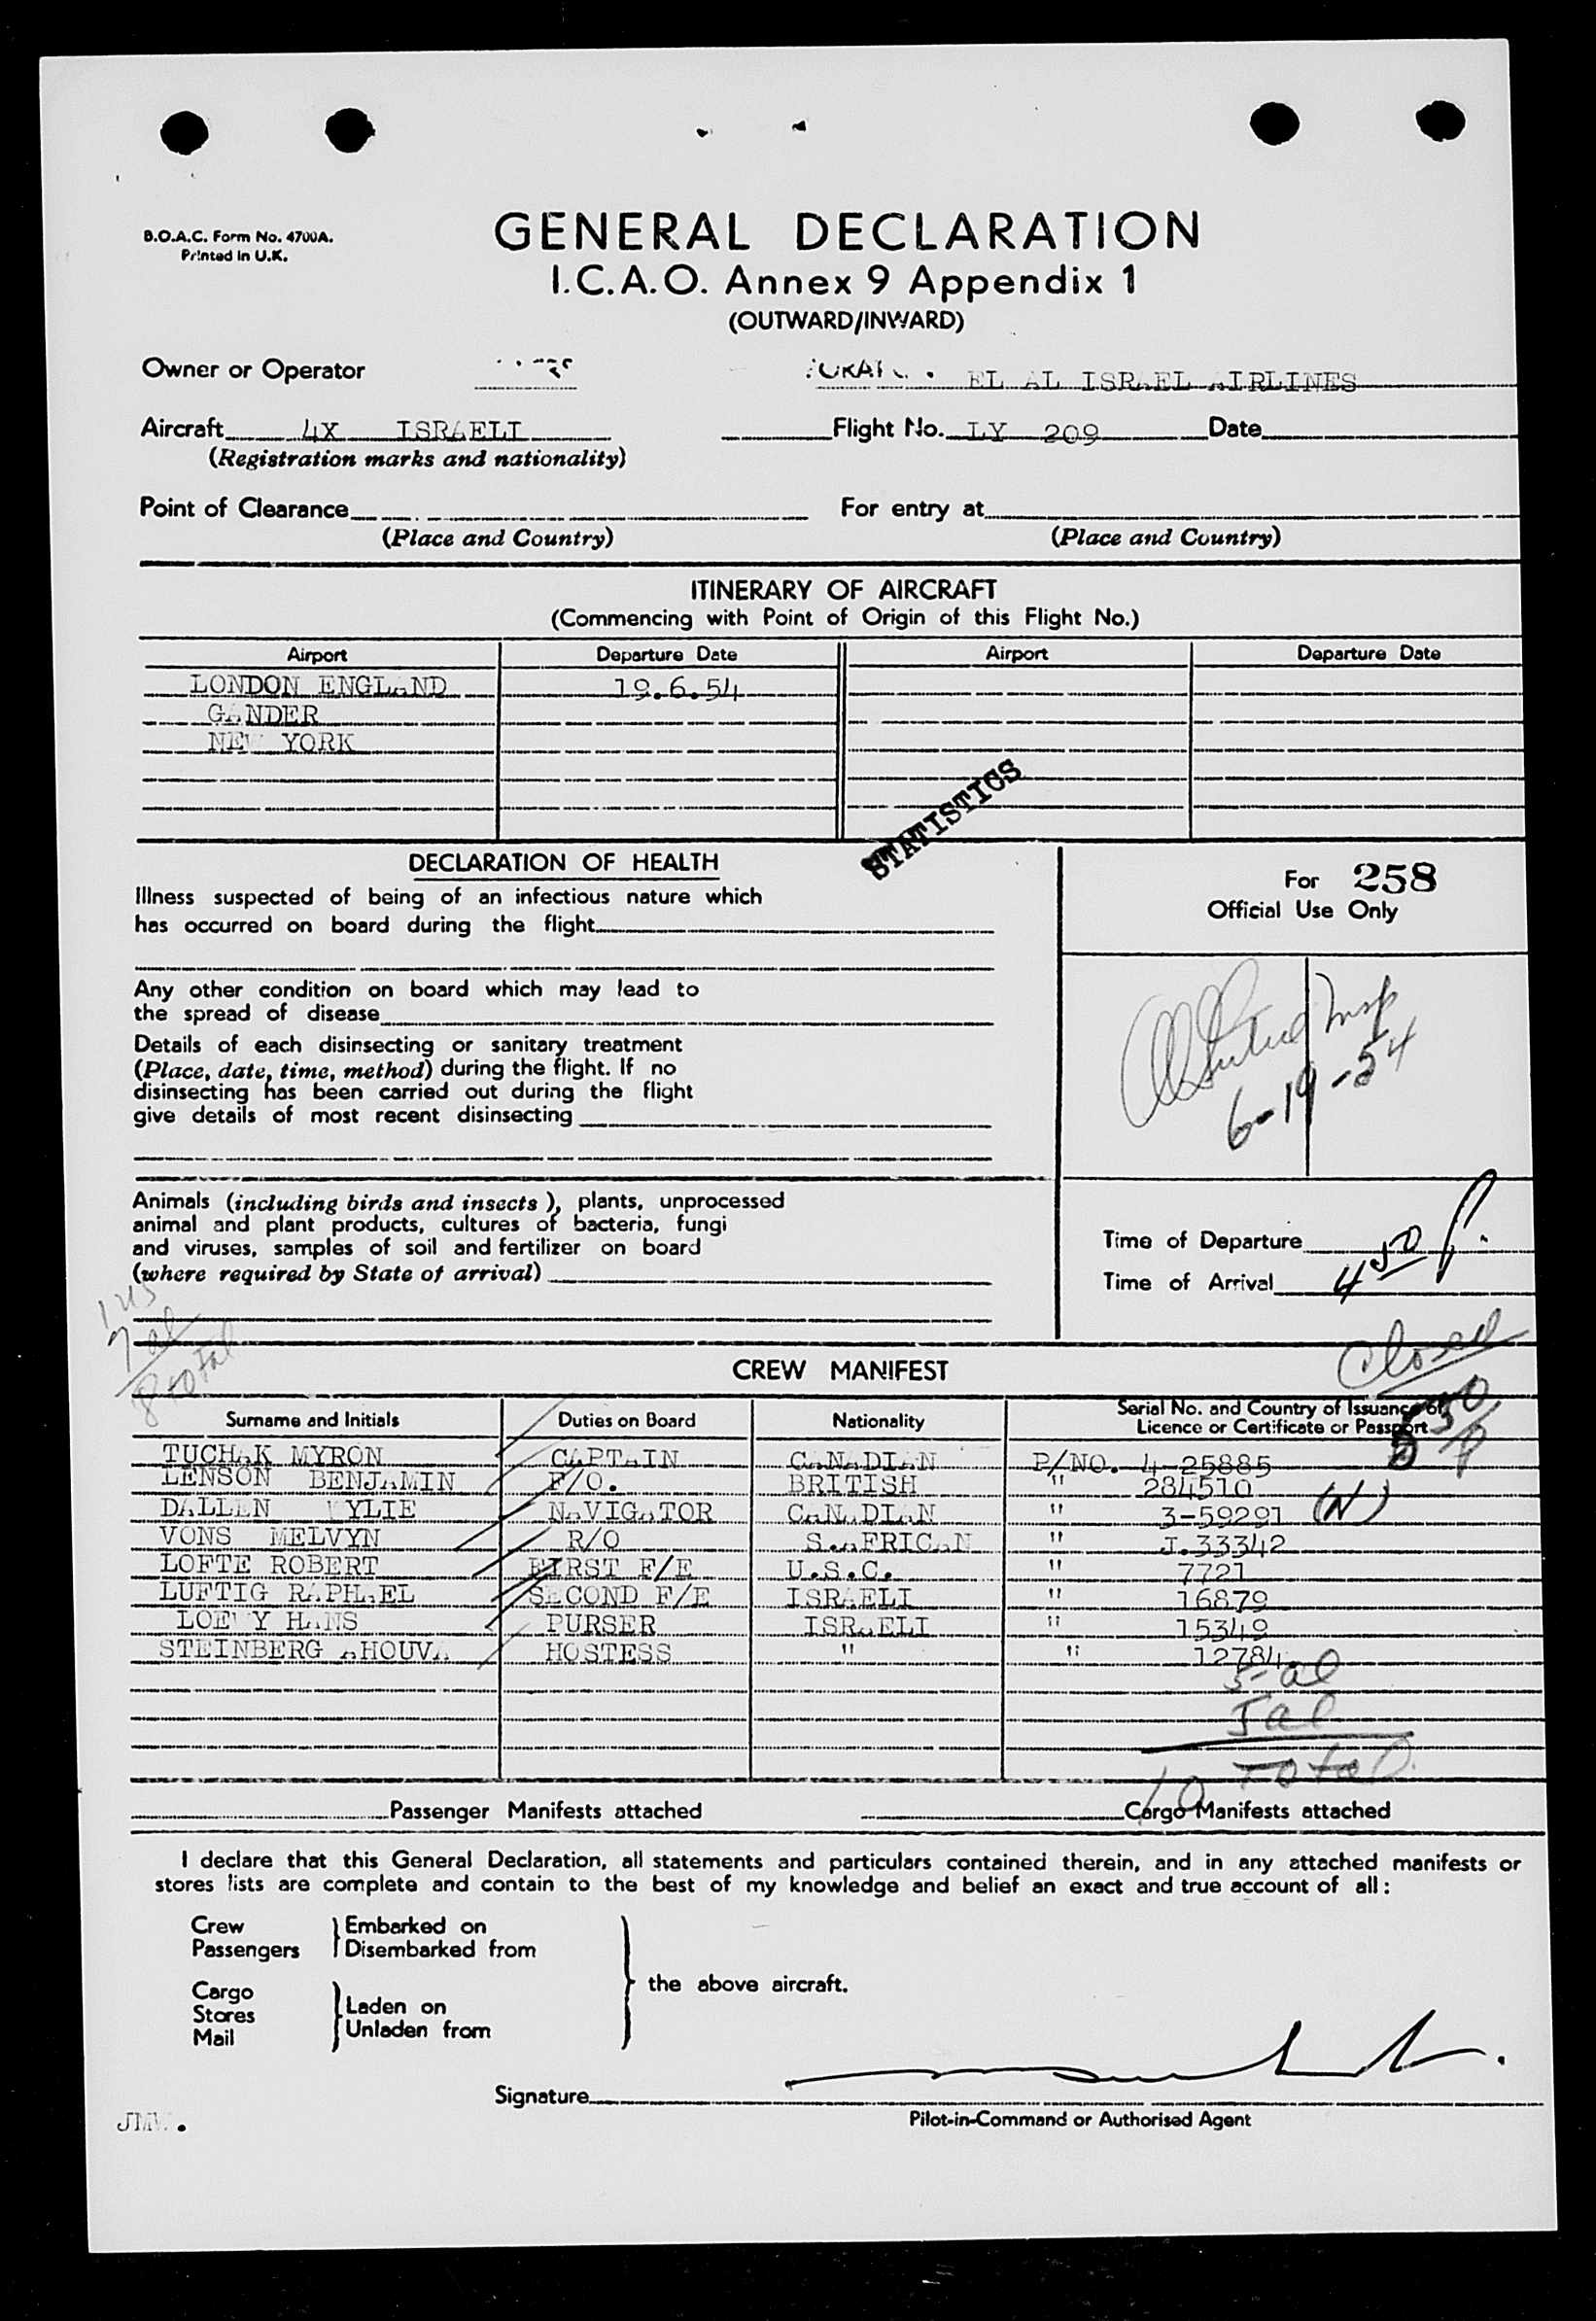 B.O.A.C. Form No. 4700A.
Printed in U.K.
GENERAL DECLARATION
I.C.A.O. Annex 9 Appendix 1
(OUTWARD/INWARD)
Owner or Operator EL AL ISRAEL AIRLINES
Aircraft 4X ISRAELI Flight No. LY 209 Date
(Registration marks and nationality)
Point of Clearance For entry at
(Place and Country) (Place and Country)
ITINERARY OF AIRCRAFT
(Commencing with Point of Origin of this Flight No.)
Airport Departure Date Airport Departure Date
LONDON ENGLAND 19.6.54
GANDER
NEW YORK
STATISTICS
DECLARATION OF HEALTH
Illness suspected of being of an infectious nature which
has occurred on board during the flight
Any other condition on board which may lead to
the spread of disease
Details of each disinsecting or sanitary treatment
(Place, date, time, method) during the flight. If no
disinsecting has been carried out during the flight
give details of most recent disinsecting
Animals (including birds and insects), plants, unprocessed
animal and plant products, cultures of bacteria, fungi
and viruses, samples of soil and fertilizer on board
(where required by State of arrival)
For 258
Official Use Only
Insp
6-19-54
Time of Departure
Time of Arrival 4 50 P.
1 US
7 al
8 total
Closed
5 30 P
CREW MANIFEST
Surname and Initials Duties on Board Nationality Serial No. and Country of Issuance of Licence or Certificate or Passport
TUCHAK MYRON CAPTAIN CANADIAN P/NO. 4-25885
LENSON BENJAMIN F/O. BRITISH " 284510
DALLEN WYLIE NAVIGATOR CANADIAN " 3-59291 (N)
VONS MELVYN R/O S.AFRICAN " J.33342
LOFTE ROBERT FIRST F/E U.S.C. " 7721
LUFTIG RAPHAEL SECOND F/E ISRAELI " 16879
LOEWY HANS PURSER ISRAELI " 15349
STEINBERG AHOUVA HOSTESS " " 12784
5 al
5 al
10 Total
Passenger Manifests attached Cargo Manifests attached
I declare that this General Declaration, all statements and particulars contained therein, and in any attached manifests or
stores lists are complete and contain to the best of my knowledge and belief an exact and true account of all:
Crew Embarked on
Passengers Disembarked from
the above aircraft.
Cargo
Stores Laden on
Mail Unladen from
Signature
Pilot-in-Command or Authorised Agent
JMW.